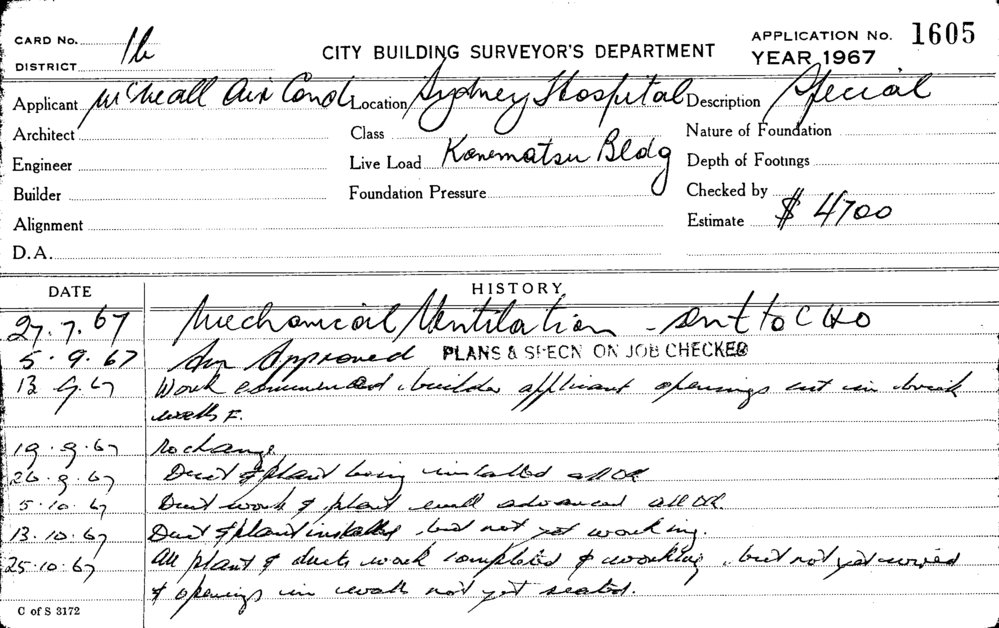 CARD No. 1b
CITY BUILDING SURVEYOR'S DEPARTMENT
APPLICATION No. 1605
DISTRICT
YEAR 1967
Applicant McNeall Air Cond. Location Sydney Hospital Description Special
Architect Class Nature of Foundation
Engineer Live Load Kanematsu Bldg Depth of Footings
Builder Foundation Pressure Checked by
Alignment Estimate $ 4700
D.A.
DATE HISTORY
27.7.67 Mechanical Ventilation - sent to CHO
5.9.67 Approved PLANS & SPECN ON JOB CHECKED
13 9.67 Work commenced builder applicant openings cut in brick
walls F.
19.9.67 No change
26.9.67 Duct & plant being installed all OK
5.10.67 Duct work & plant well advanced all OK
13.10.67 Duct & plant installed but not yet working.
25.10.67 All plant & ducts work completed & working, but not yet wired
& openings in wall not yet sealed.
C of S 3172